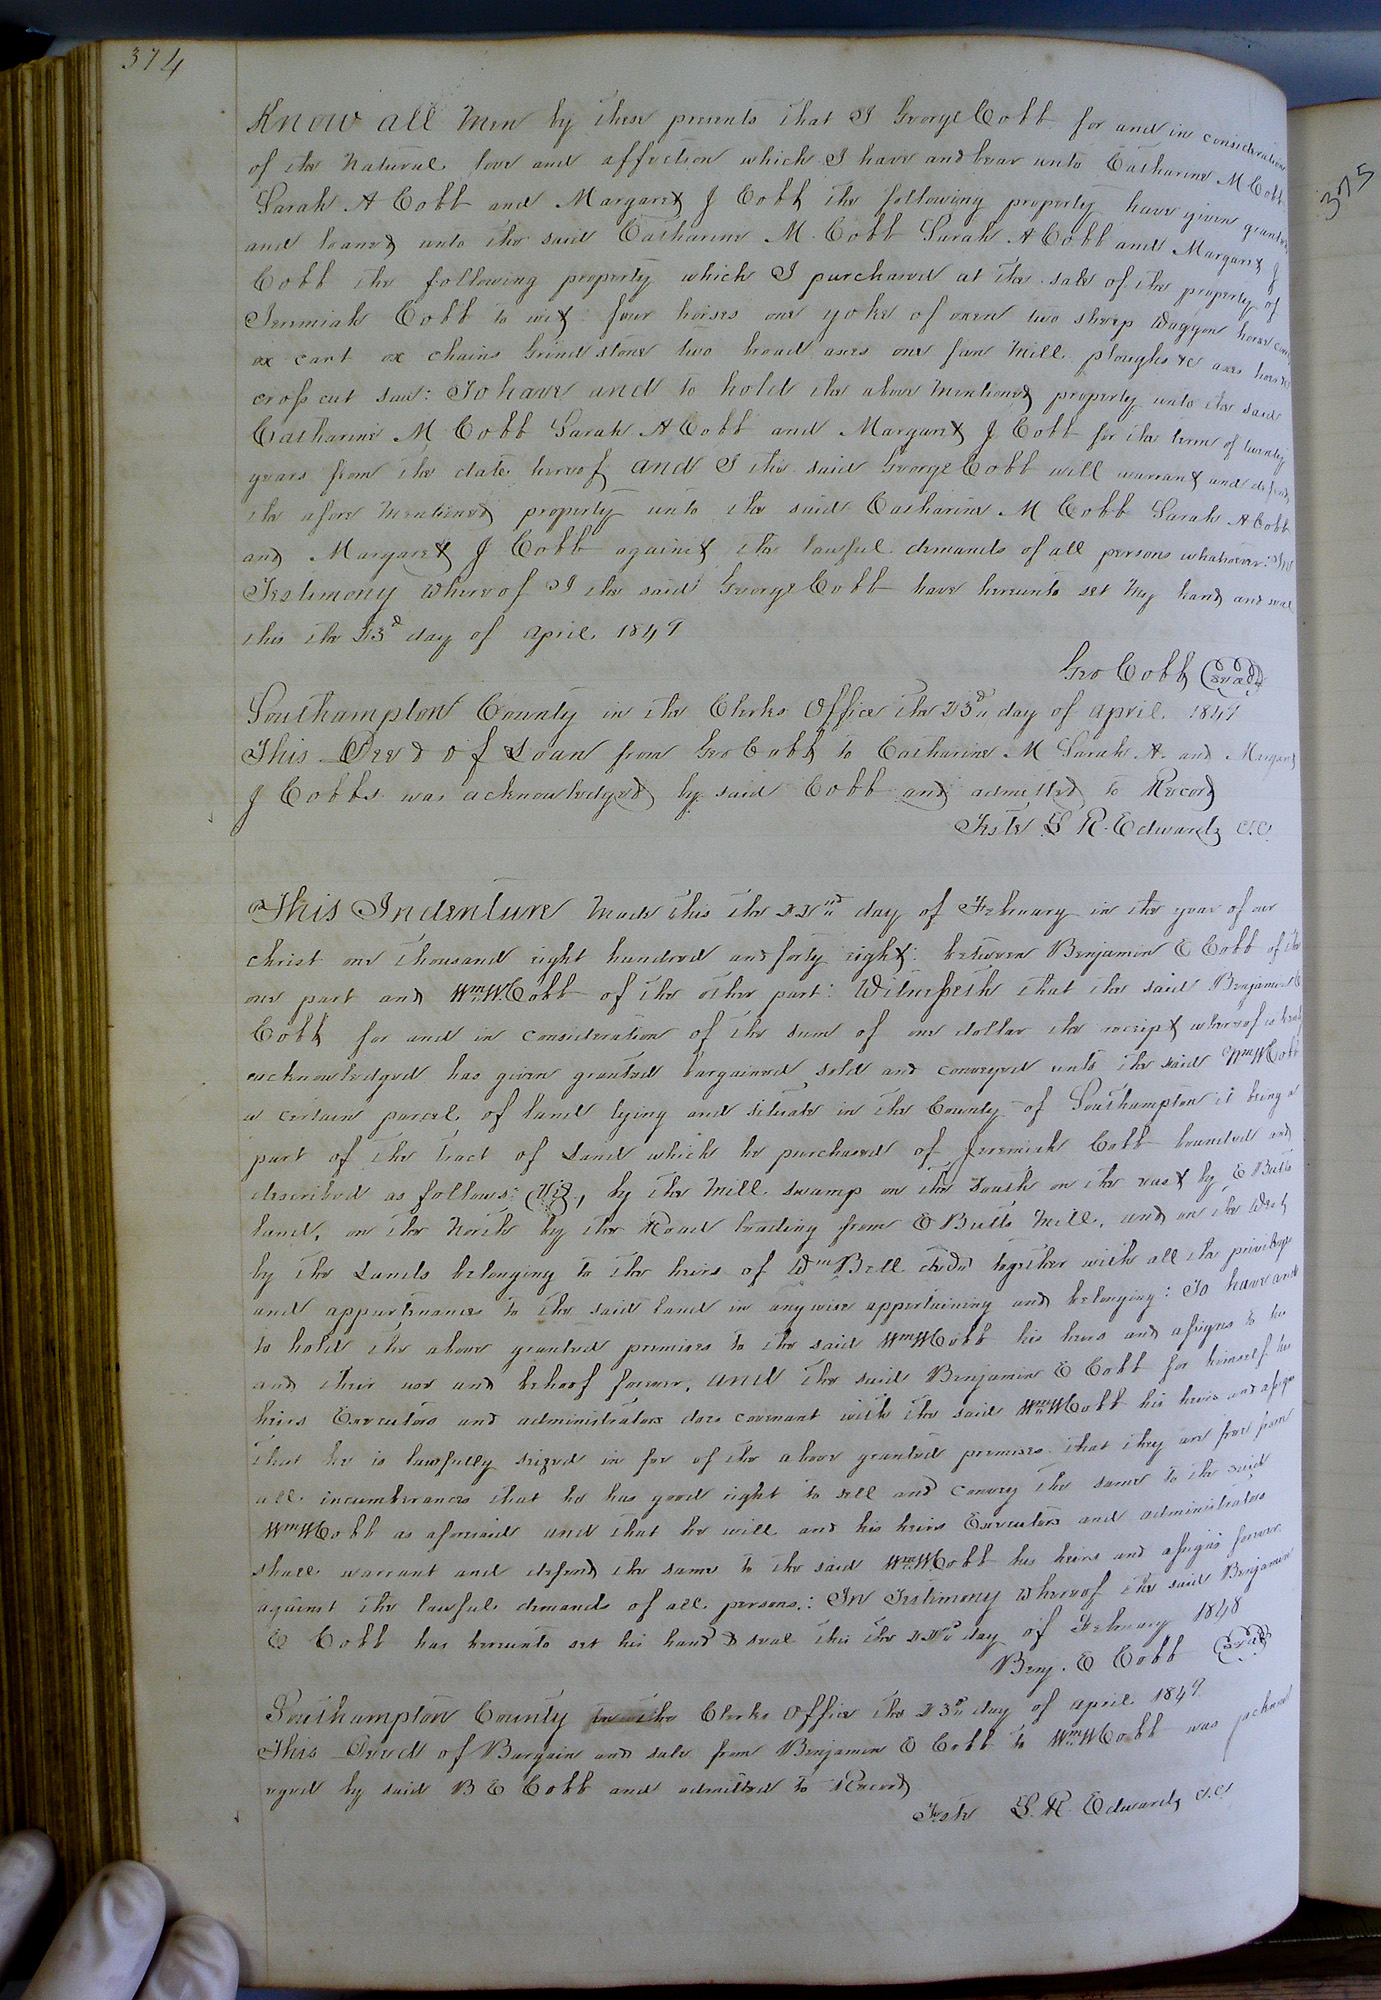 374
Know all Men by these presents that I George Cobb for and in consideration
of the Natural love and affection which I have and bear unto Catharine M Cobb
Sarah A Cobb and Margaret J Cobb the following property have given granted
and loaned unto the said Catharine M. Cobb Sarah A Cobb and Margaret J
Cobb the following property which I purchased at the sale of the property of
Jeremiah Cobb to wit: four horses one yoke of oxen two sheep Waggon horse cart
ox cart ox chains Grind stone two broad axes one fan Mill ploughs &c axes hoes &c
cross cut saw: To have and to hold the above Mentioned property unto the said
Catharine M Cobb Sarah A Cobb and Margaret J Cobb for the term of twenty
years from the date hereof and I the said George Cobb will warrant and defend
the afore Mentioned property unto the said Catharine M Cobb Sarah A Cobb
and Margaret J Cobb against the lawful demands of all persons whatsoever: In
Testimony Whereof I the said George Cobb have hereunto set My hand and seal
this the 23d day of April 1849
Geo Cobb Seal
Southampton County in the Clerks Office the 23d day of April 1849
This Deed of Loan from Geo Cobb to Catharine M Sarah A. and Margaret
J Cobbs was acknowledged by said Cobb and admitted to Record
Teste L R. Edwards C.C.
This Indenture Made this the 22nd day of February in the year of our
christ one thousand eight hundred and forty eight: between Benjamin E Cobb of the
one part and Wm W. Cobb of the other part: Witnesseth that the said Benjamin E
Cobb for and in consideration of the sum of one dollar the receipt whereof is hereby
acknowledged has given granted bargained sold and conveyed unto the said Wm W Cobb
a certain parcel of land lying and situate in the County of Southampton it being a
part of the tract of Land which he purchased of Jeremiah Cobb bounded and
described as follows: (Viz), by the Mill swamp on the South on the east by E Butts
land, on the North by the Road leading from E Butts Mill, and on the West
by the Lands belonging to the heirs of Wm Bell decd together with all the privileges
and appurtenances to the said land in anywise appertaining and belonging: To have and
to hold the above granted premises to the said Wm W Cobb his heirs and assigns to his
and their use and behoof forever, and the said Benjamin E Cobb for himself his
heirs Executors and administrators does covenant with the said Wm W Cobb his heirs and assigns
that he is lawfully seized in fee of the above granted premises that they are free from
all incumberances that he has good right to sell and convey the same to the said
Wm W Cobb as aforesaid and that he will and his heirs Executors and administrators
shall warrant and defend the same to the said Wm W. Cobb his heirs and assigns forever
against the lawful demands of all persons: In Testimony Whereof the said Benjamin
E Cobb has hereunto set his hand & seal this the 22nd day of February 1848
Benj. E Cobb Seal
Southampton County in the Clerks Office the 23d day of April 1849
This Deed of Bargain and sale from Benjamin E Cobb to Wm W Cobb was acknowl
eged by said B E Cobb and admitted to Record
Teste L. R. Edwards C.C.
375